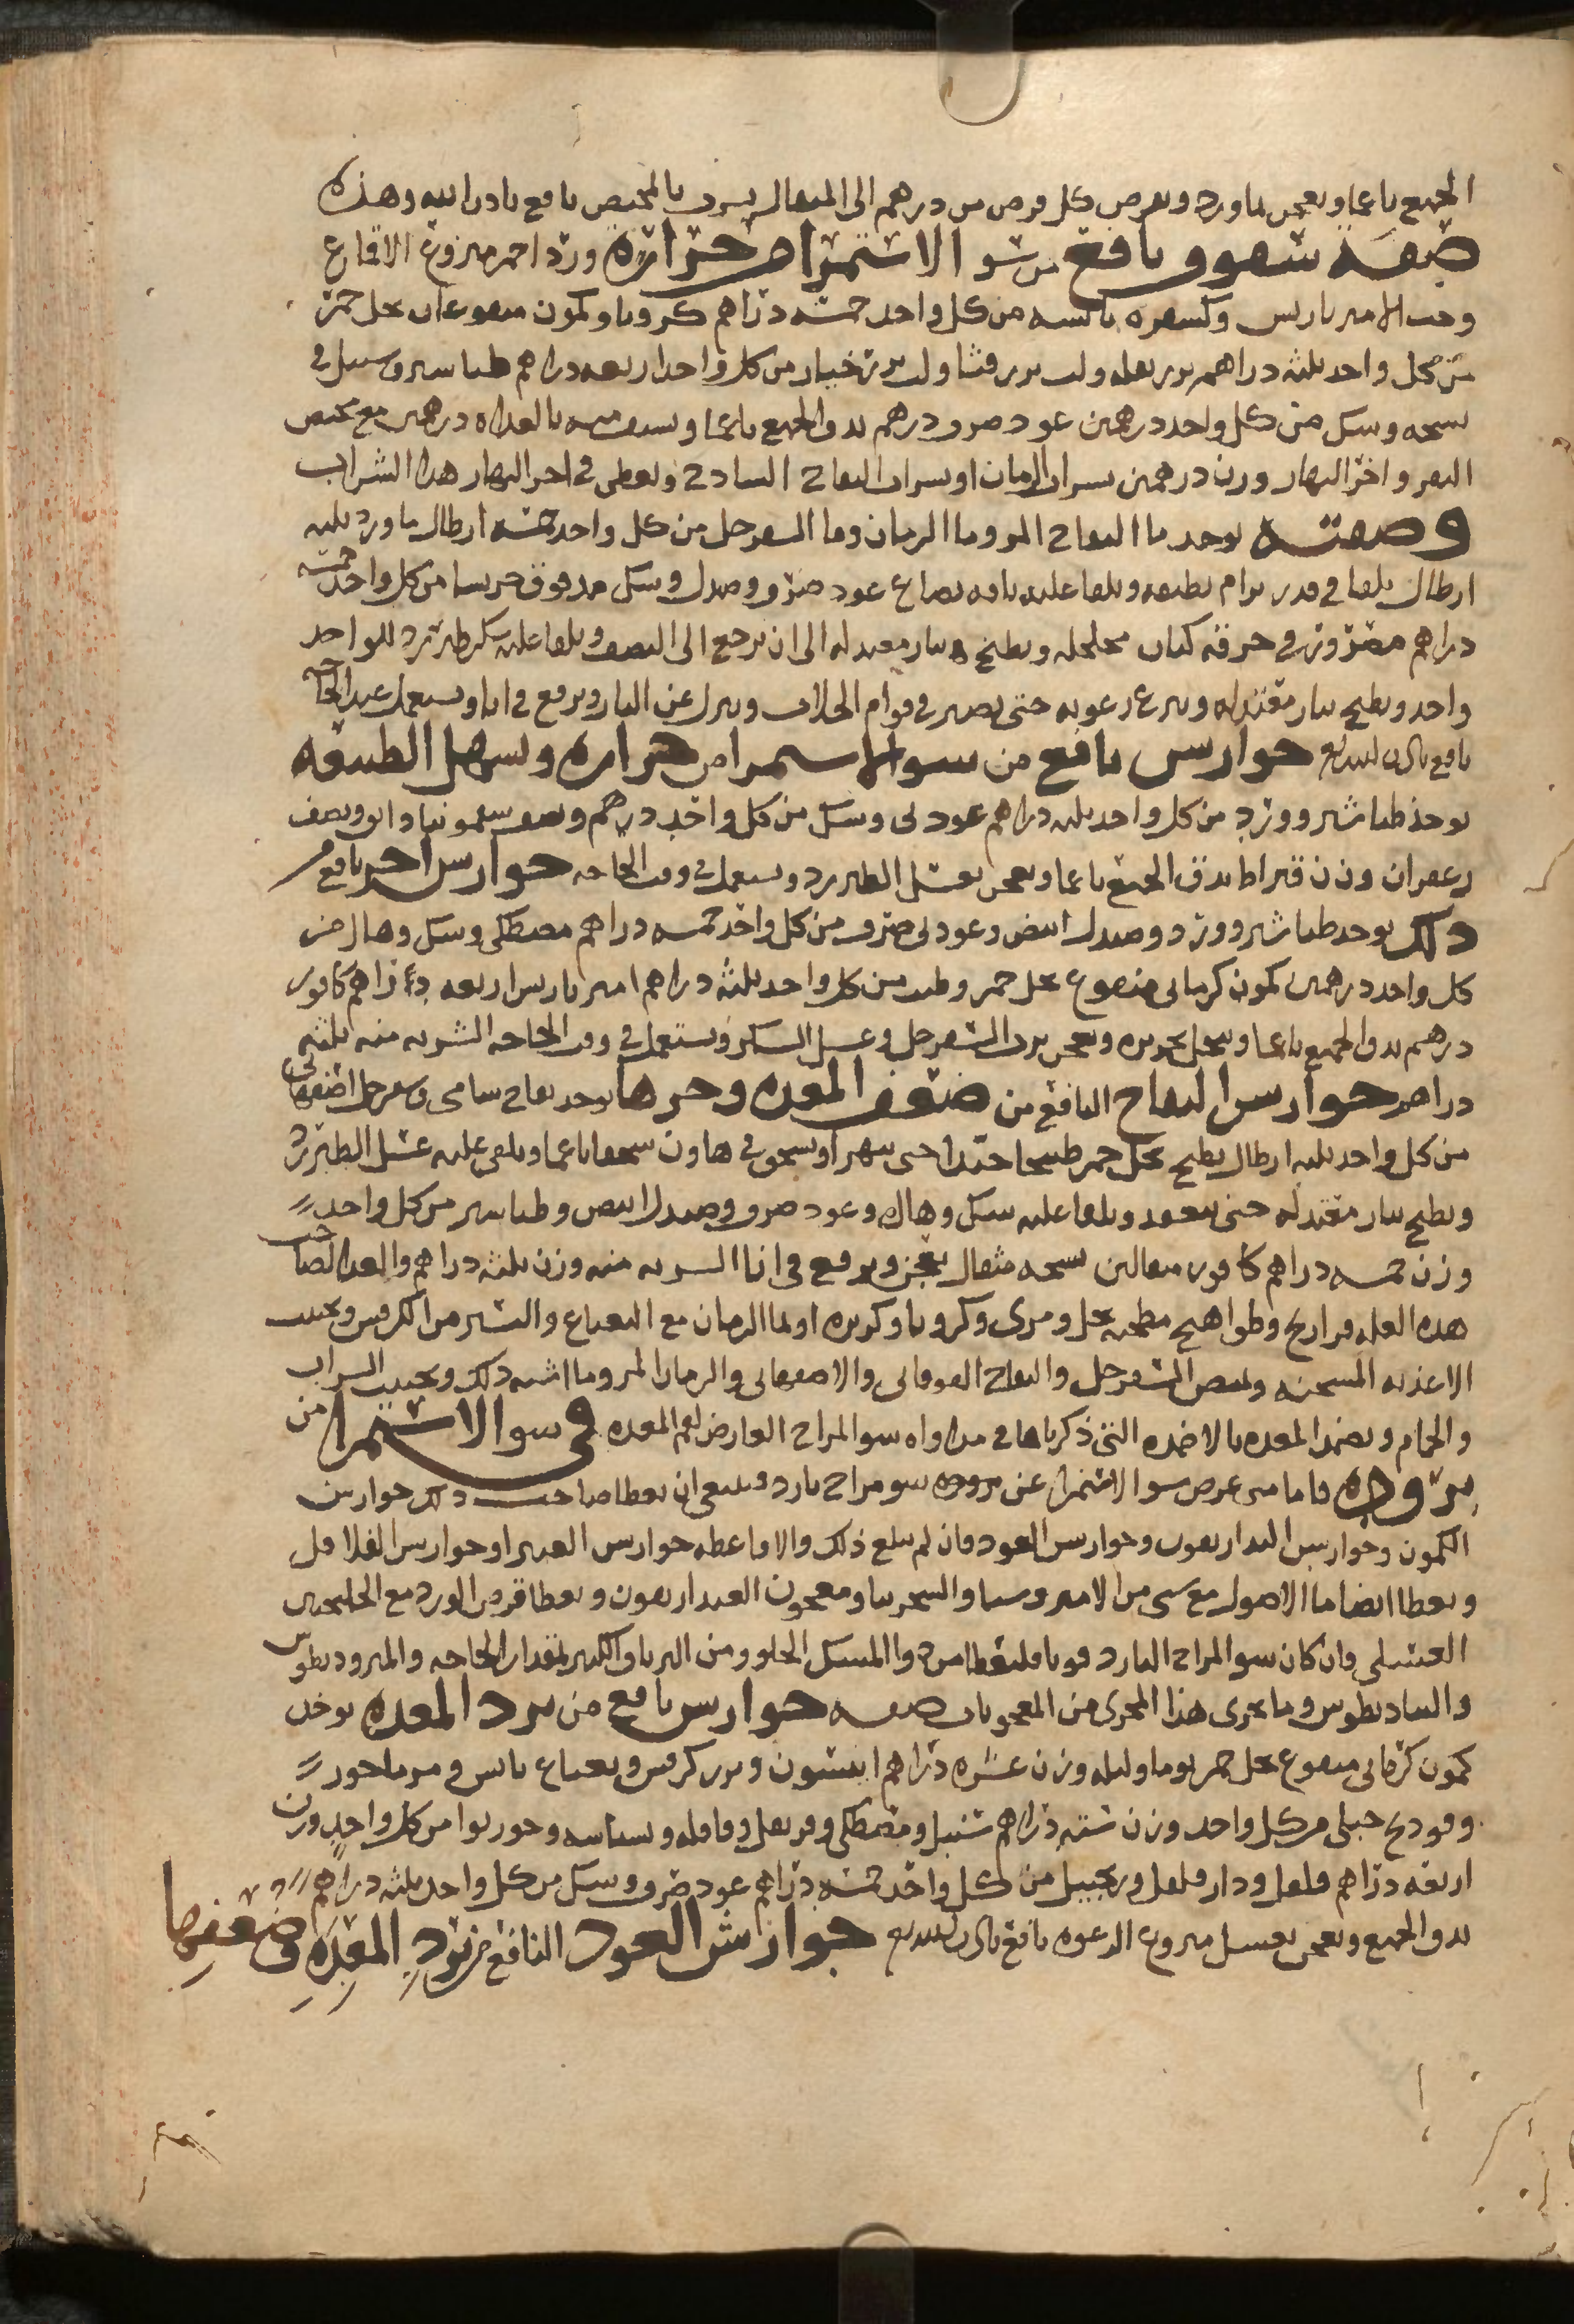 الجميع ناعما ويعجن بماورد ويقرص كل قرص من درهم الى المثقال يسقى بالمخيض نافع باذن الله وهذه
صفة سفوف نافع من سو الاستمرا من حرارة ورد احمر منزوع الاقماع
وحب الامبرباريس وكسفره يابسه من كل واحد خمسه دراهم كرويا وكمون منقوعان بخل خمر
من كل واحد ثلثه دراهم بزر بقله ولب بزر قثا ولب بزر خيار من كل واحد اربعه دراهم طباشير وسنبل
وسك من كل واحد درهمين عود صرف درهم يدق الجميع ناعما ويستف منه بالغداه درهمين مع مخيض
البقر واخر النهار وزن درهمين بشراب الرمان او بشراب التفاح الساذج ويعطى في اخر النهار هذا الشراب
وصفته يوخذ ما التفاح المز وما الرمان وما السفرجل من كل واحد خمسه ارطال ماورد ثلثه
ارطال يلقا في قدر برام نظيفه ويلقا عليه باقه نعناع عود صرف وصندل وسك مدقوق جريشا من كل واحد خمسه
دراهم مصرور في خرقه كتان مخلخله ويطبخ بنار معتدله الى ان يرجع الى النصف ويلقا عليه سكر طبرزد للواحد
واحد ويطبخ بنار معتدله وينزع رغوته حتى يصير في قوام الجلاب وينزل عن النار ويرفع في انا ويستعمل عند الحاجه
نافع باذن الله تع جوارش نافع من سو الاستمرا من حراره ويسهل الطبيعه
يوخذ طباشير وورد من كل واحد ثلثه دراهم عود ني وسك من كل واحد درهم ونصف سقمونيا دانق ونصف
زعفران وزن قيراط يدق الجميع ناعما ويعجن بعسل الطبرزد ويستعمل في وقت الحاجه جوارش اخر نافع من
ذلك يوخذ طباشير وورد وصندل ابيض وعود ني صرف من كل واحد خمسه دراهم مصطكى وسك وهال من
كل واحد درهمين كمون كرماني منقوع بخل خمر من كل واحد ثلثه دراهم امبرباريس اربعه دراهم كافور
درهم يدق الجميع ناعما وينخل بحريره ويعجن برب السفرجل وعسل السكر ويستعمل في وقت الحاجه الشربه منه ثلثه
دراهم جوارش التفاح النافع من ضعف المعده وحرها يوخذ تفاح شامي وسفرجل اصفهاني
من كل واحد ثلثه ارطال يطبخ بخل خمر طبخا جيدا حتى يتهرا ويسحق في هاون سحقا ناعما ويلقى عليه عسل الطبرزد
ويطبخ بنار معتدله حتى ينعقد ويلقا عليه سك وهال وعود صرف وصندل ابيض وطباشير من كل واحد
وزن خمسه دراهم كافور مثقالين مثقال يعجن ويرفع في انا الشربه منه وزن ثلثه دراهم والغدا لصاحب
هذه العله فراريج وطواهيج مطجنه بخل ومري وكرويا وكزبره او بما الرمان مع النعناع واليسير من الكرفس ويجتنب
الاغذيه المسخنه ويمص السفرجل والتفاح والاصفهاني والرمان المز وما اشبه ذلك ويجتنب الشراب
والحمام ويضمد المعده بالاضمده التي ذكرناها في مداواه سو المزاج العارض لفم المعده في سو الاستمرا من
بروده فاما متى عرض سو الاستمرا عن بروده سو مزاج بارد فينبغي ان يعطا صاحب ذلك جوارش
الكمون وجوارش البداريقون وجوارش العود فان لم يبلغ ذلك والا فاعطه جوارش العنبر او جوارش الفلافل
ويعطا ايضا ما الاصول مع شي من الامروسيا والسجزينا ومعجون البداريقون ويعطا قرص الورد مع الجلنجبين
العسلي فان كان سو المزاج البارد قويا فليعطا من دوا المسك الحلو ومن الترياق الكبير بمقدار الحاجه والمثروديطوس
والشاديطوس وما يجري هذا المجرى من المعجونات صفه جوارش نافع من برد المعده يوخذ
كمون كرماني منقوع بخل خمر يوما وليله وزن عشره دراهم انيسون وبزر كرفس ونعناع يابس ومرماحوز
وفوذنج جبلي من كل واحد وزن سته دراهم سنبل ومصطكى وقرنفل وقاقله وبسباسه وجوزبوا من كل واحد وزن
اربعه دراهم فلفل ودار فلفل وزنجبيل من كل واحد خمسه دراهم عود صرف وسك من كل واحد ثلثه دراهم
يدق الجميع ويعجن بعسل منزوع الرغوه نافع باذن الله تع جوارش العود النافع من برد المعده وضعفها